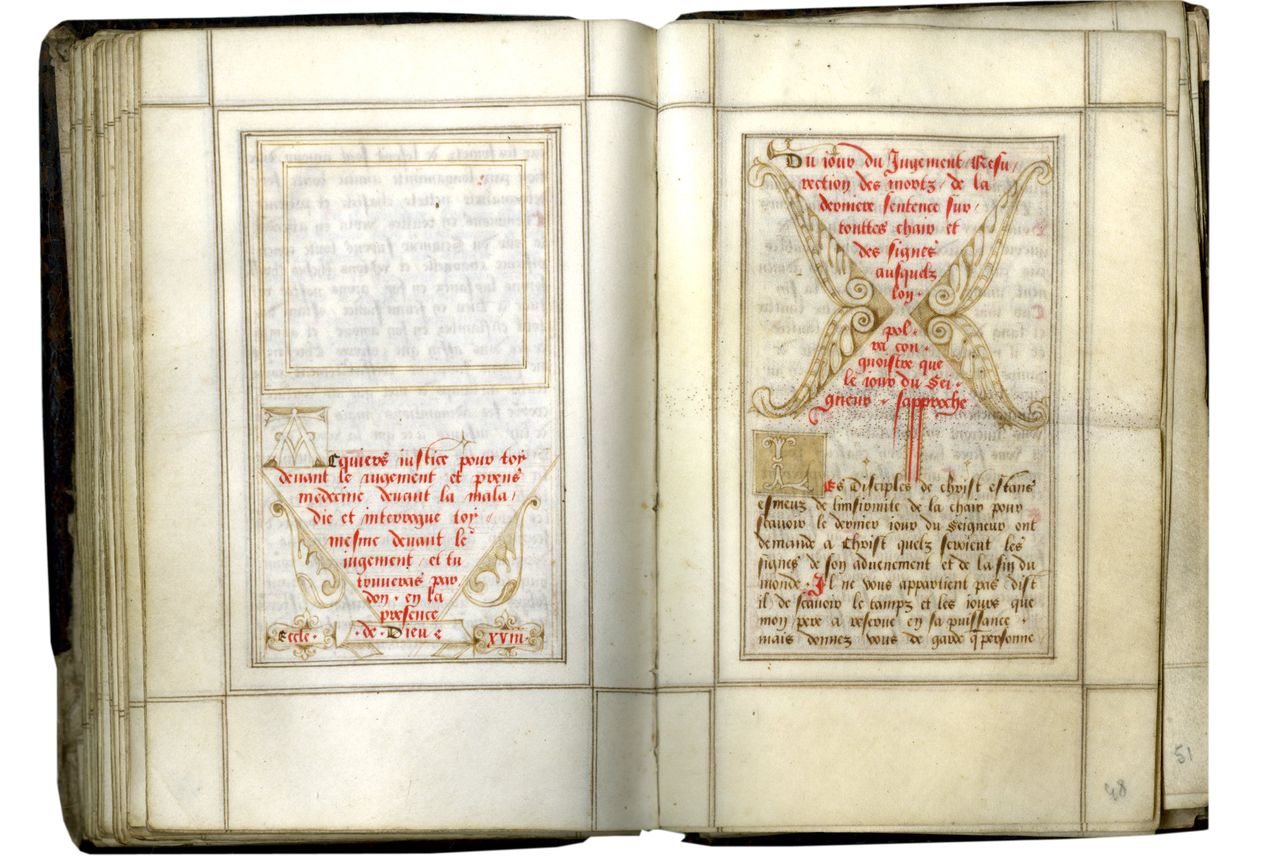 Acquiers iustice pour toy
devant le iugement et prens
medecine devant la mala/
die et interrogue toy
mesme devant le
iugement / et tu
trouveras par
don · en la
presence
· de · Dieu ·
Eccle ·
XVIII ·
Du iour du Jugement / Resu/
rection des mortz / de la
derniere sentence sur
touttes chair et
des signes
ausquelz
lon ·
pol ·
ra con ·
gnoistre que
le iour du Sei ·
gneur · sapproche
Les disciples de christ estans
esmeuz de linfirmite de la chair pour
scavoir le dernier iour du Seigneur ont
demande a Christ quelz seroient les
signes de son advenement et de la fin du
monde · Il ne vous appartient pas dist
il de scavoir le tampz et les iours que
mon pere a reserve en sa puissance ·
mais donnez vous de garde q̄ personne
48
51